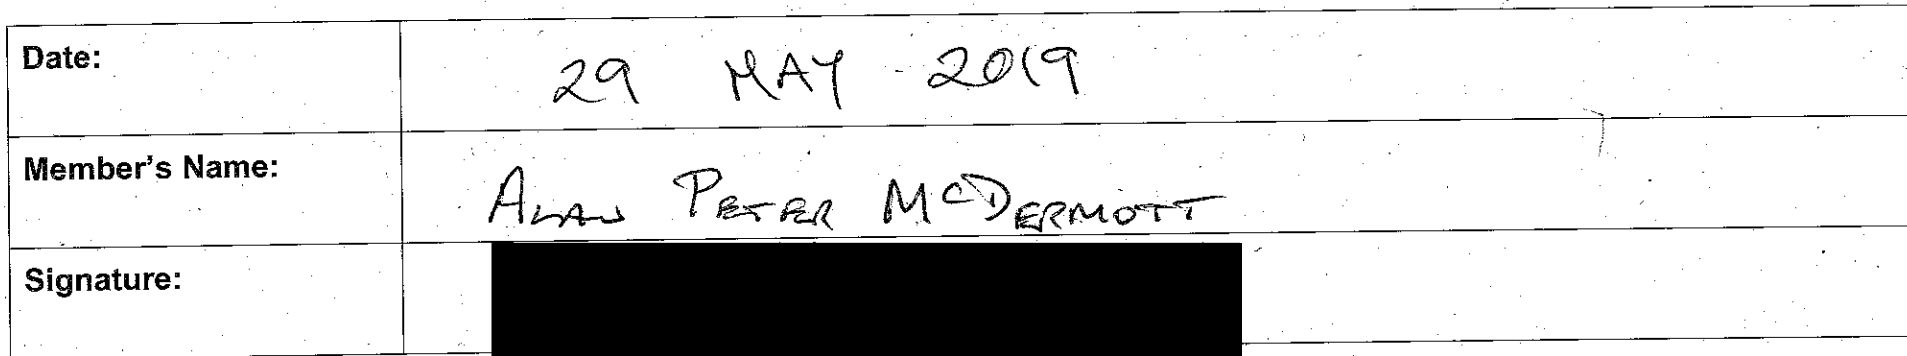 Date: 29 MAY 2019
Member's Name: ALAN PETER McDERMOTT
Signature: